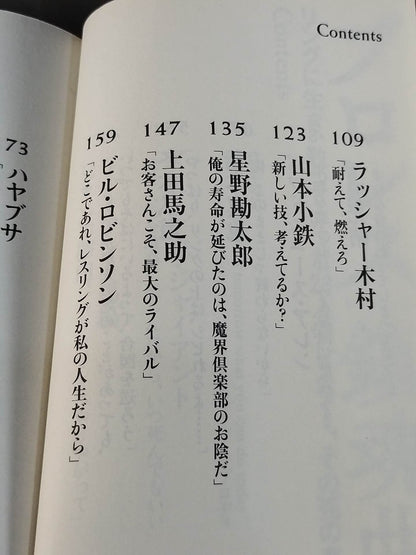 Contents
109
ラッシャー木村
「耐えて、燃えろ」
123
山本小鉄
「新しい技、考えてるか?」
135
星野勘太郎
「俺の寿命が延びたのは、魔界倶楽部のお陰だ」
147
上田馬之助
「お客さんこそ、最大のライバル」
159
ビル・ロビンソン
「どこであれ、レスリングが私の人生だから」
73
ハヤブサ